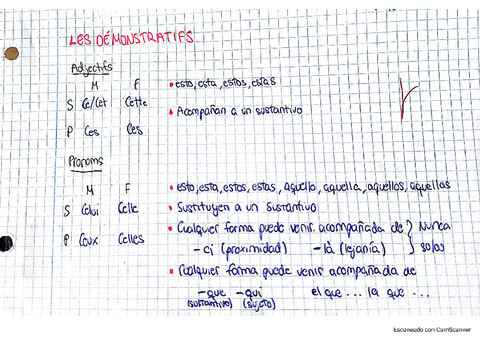 LES DÉMONSTRATIFS
Adjectifs
M F
S Ce/Cet Cette
P Ces Ces
• esto, esta, estos, estas
• Acompañan a un sustantivo
Pronoms
M F
S Celui Celle
P Ceux Celles
• esto, esta, estos, estas, aquello, aquella, aquellos, aquellas
• Sustituyen a un Sustantivo
• Cualquier forma puede venir acompañada de } Nunca
- ci (proximidad) - là (lejanía) } solos
• Cualquier forma puede venir acompañada de
- que - qui el que ... la que ...
(sustantivo) (sujeto)
Escaneado con CamScanner